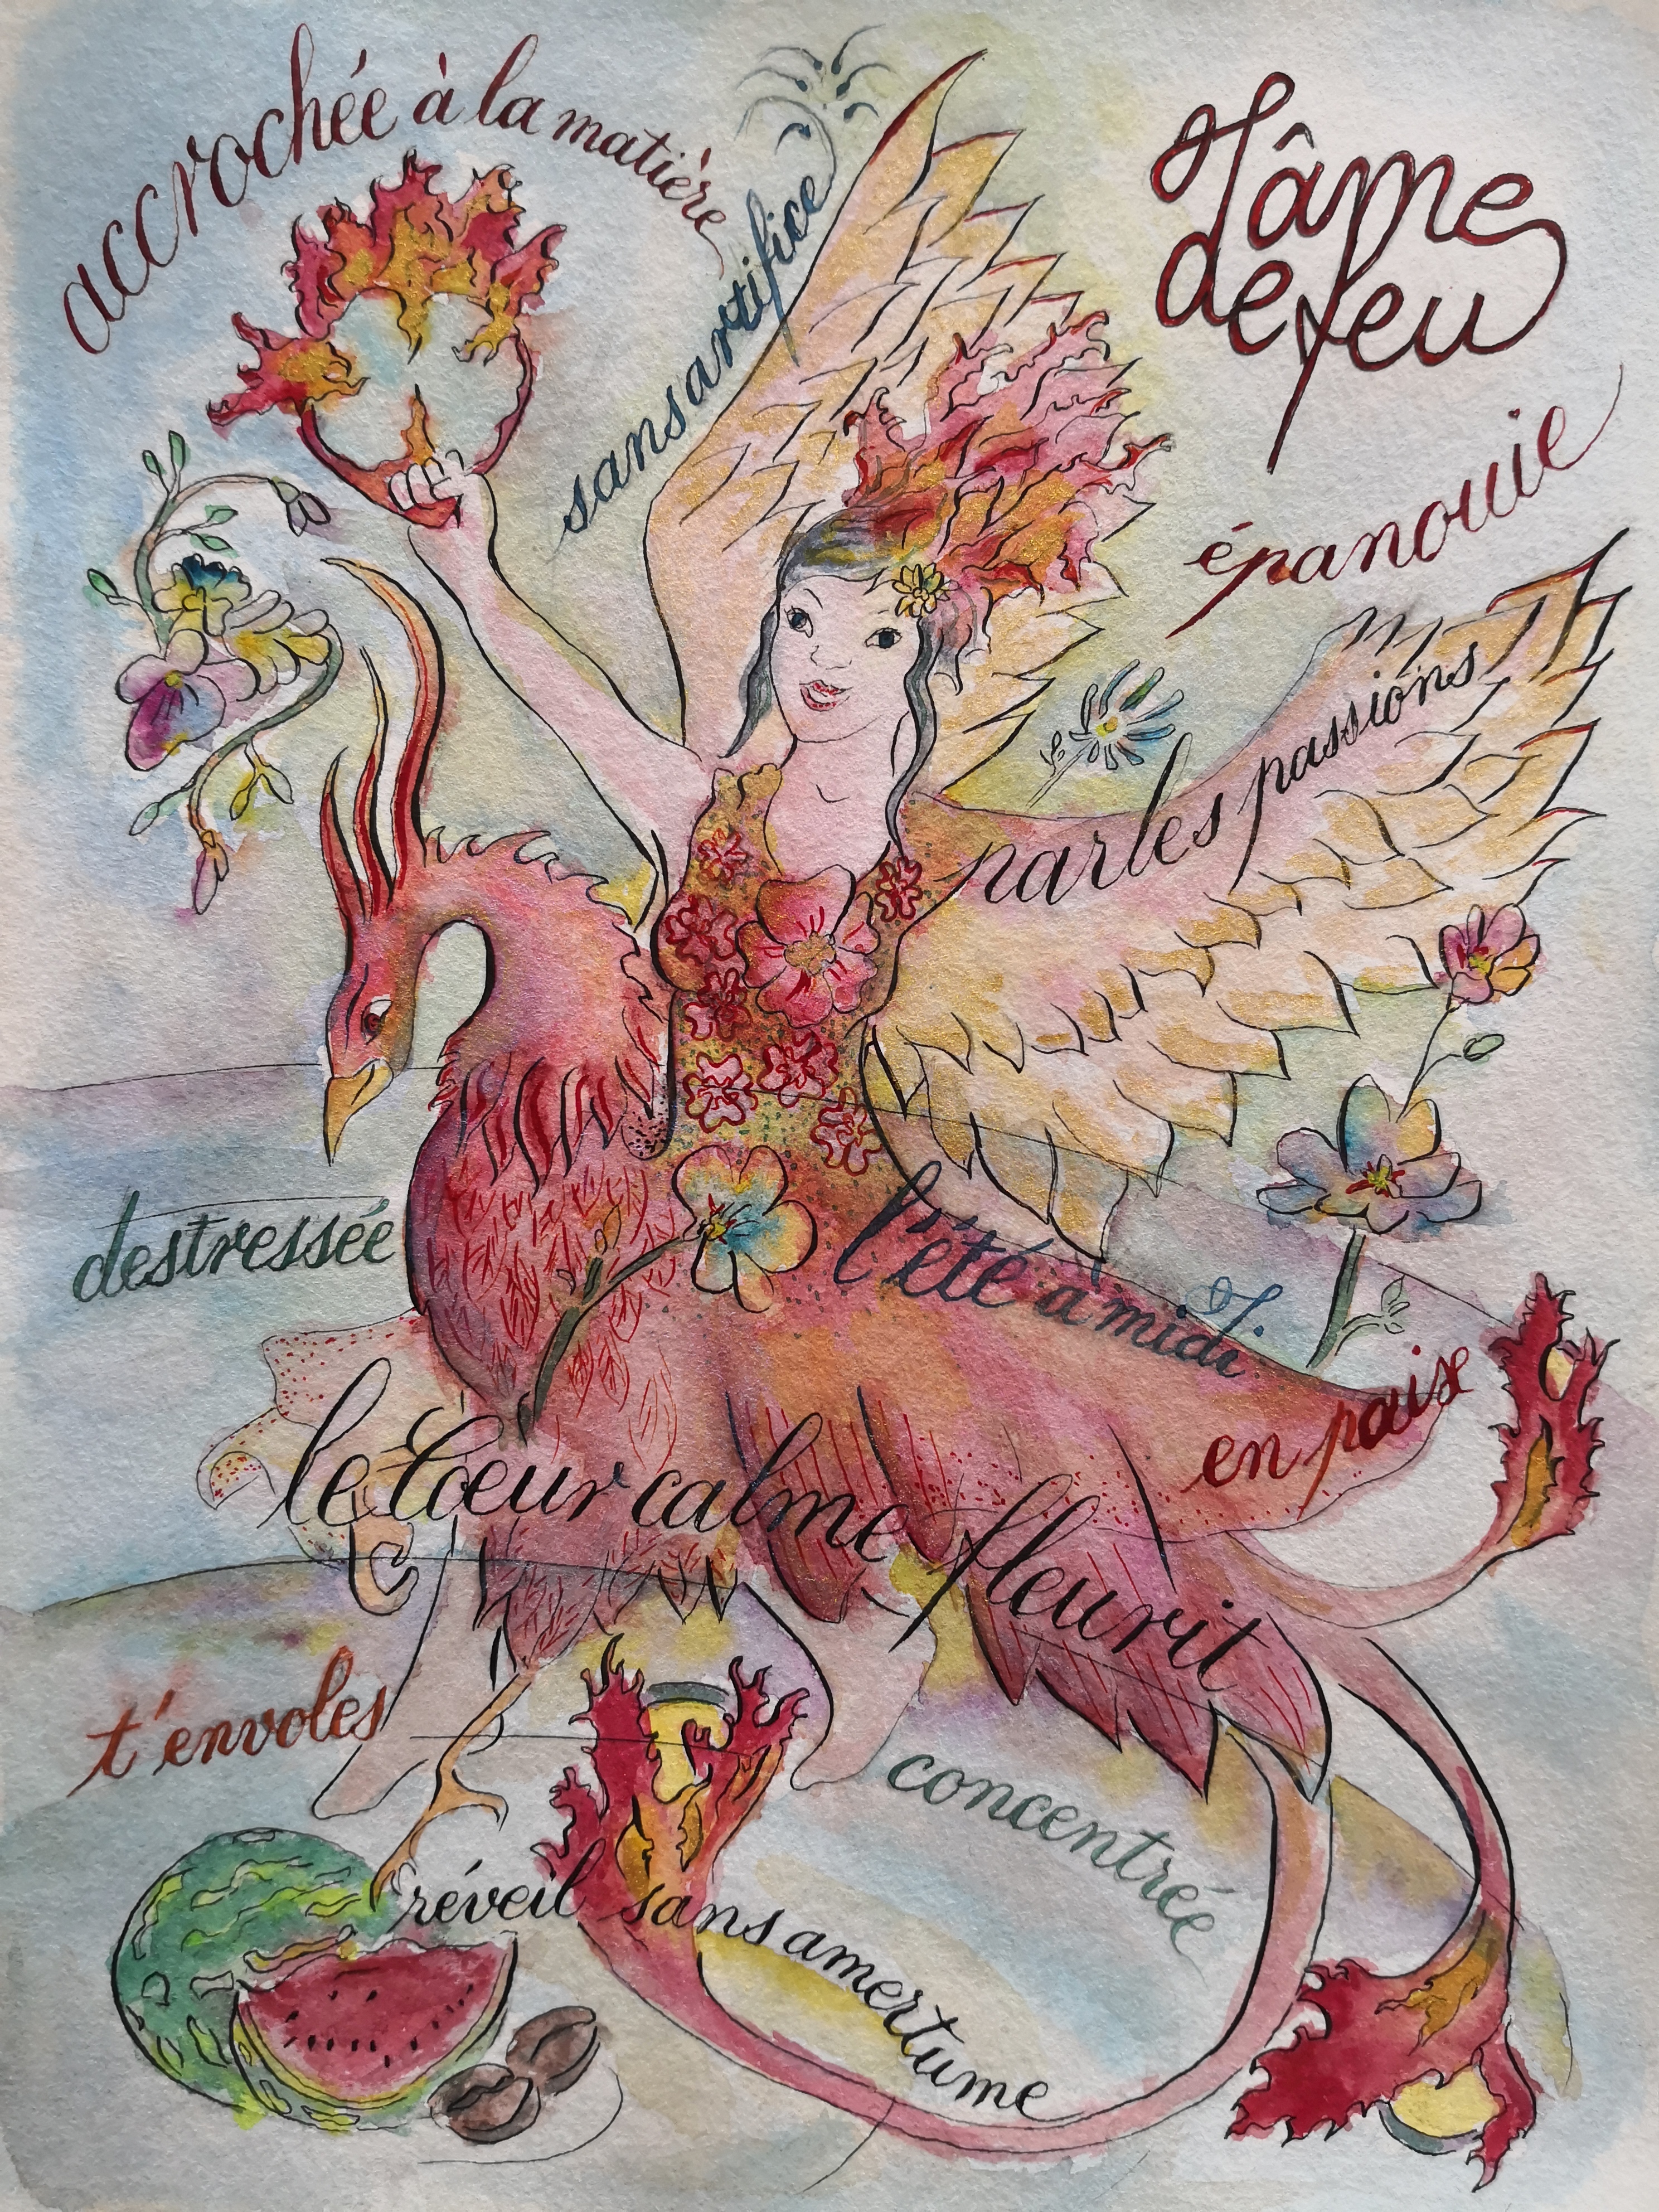 accrochée à la matière
sans artifice
l'âme
de feu
épanouie
par les passions
destressée
l'été à midi
en paise
le Cœur calme fleurit
t'envoles
concentrée
réveil sans amertume